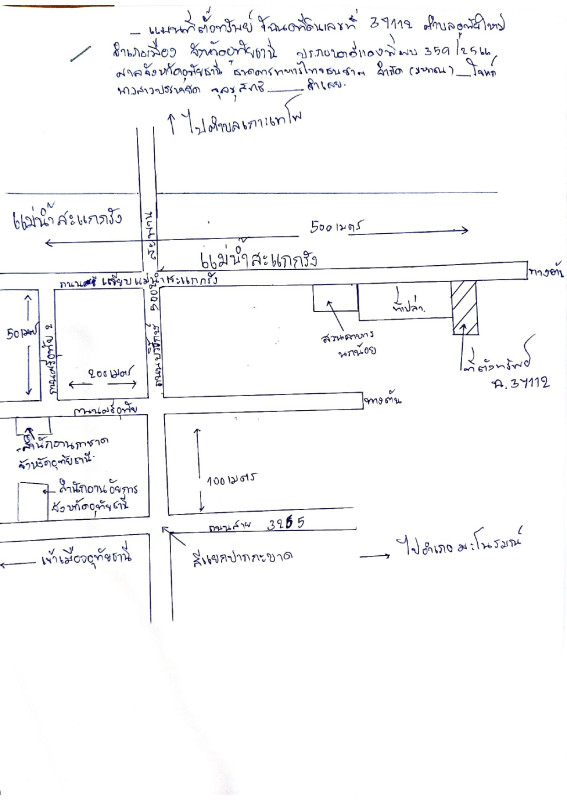 - แผนที่ตั้งทรัพย์ โฉนดที่ดินเลขที่ 37112 ตำบลอุทัยใหม่
อำเภอเมือง จังหวัดอุทัยธานี
ศาลจังหวัดอุทัยธานี ธนาคารทหารไทยธนชาต จำกัด (มหาชน) โจทก์
นางสาวประหยัด จำเลย.
↑ ไปตำบลเกาะเทโพ
แม่น้ำสะแกกรัง
สะพาน
500 เมตร
แม่น้ำสะแกกรัง
ถนนศรี เลียบแม่น้ำสะแกกรัง
ทางตัน
50 เมตร
200 เมตร
สวนอาหาร
นกน้อย
ที่เปล่า
ที่ตั้งทรัพย์
ฉ. 37112
ถนนศรีอุทัย
ทางตัน
สำนักงานกาชาด
จังหวัดอุทัยธานี
สำนักงานอัยการ
จังหวัดอุทัยธานี
100 เมตร
ถนนสาย 3265
← เข้าเมืองอุทัยธานี
สี่แยกปากกะบาด
→ ไปอำเภอมะโนรมณ์